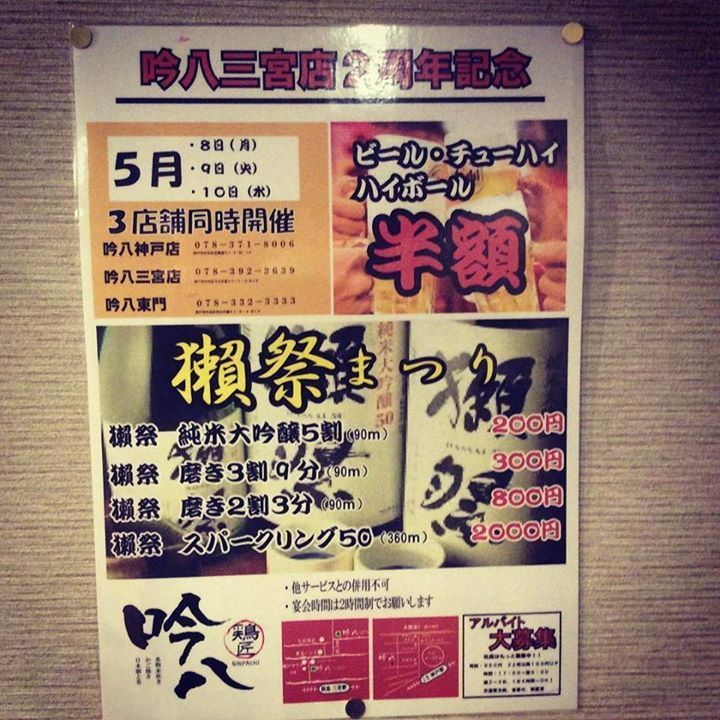 吟八三宮店2周年記念
5月
・8日(月)
・9日(火)
・10日(水)
3店舗同時開催
吟八神戸店 078-371-8006
吟八三宮店 078-392-3639
吟八東門 078-332-3333
ビール・チューハイ
ハイボール
半額
獺祭まつり
獺祭 純米大吟醸5割(90m) 200円
獺祭 磨き3割9分(90m) 300円
獺祭 磨き2割3分(90m) 800円
獺祭 スパークリング50(360m) 2000円
純米大吟醸50
獺祭
・他サービスとの併用不可
・宴会時間は2時間制でお願いします
吟八
鶏匠
GINPACHI
アルバイト
大募集